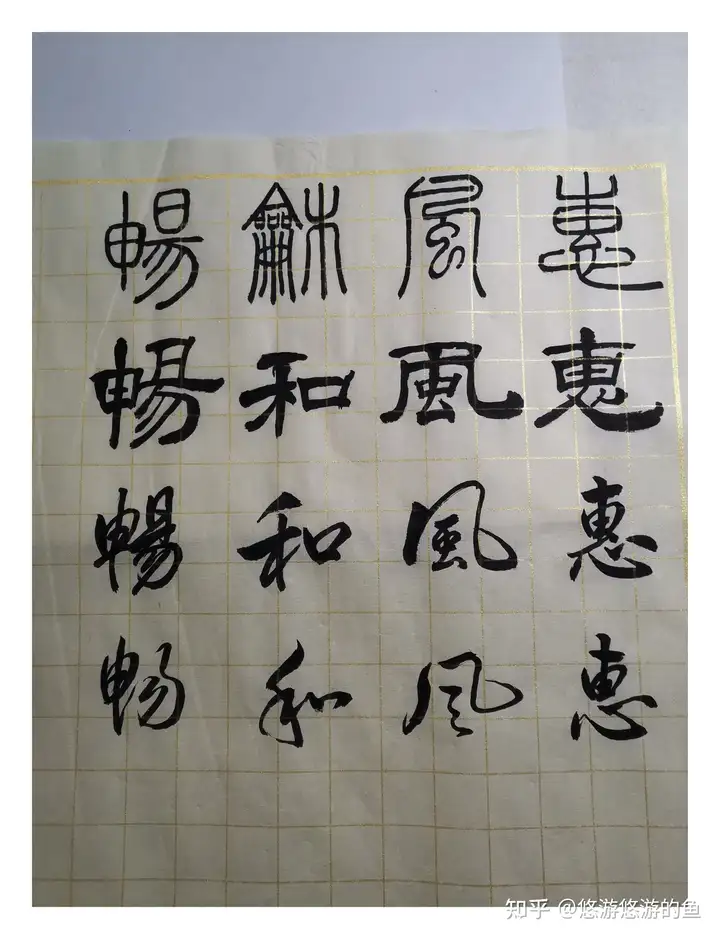 惠風龢暢
惠風和暢
惠風和暢
惠风和畅
知乎 @悠游悠游的鱼